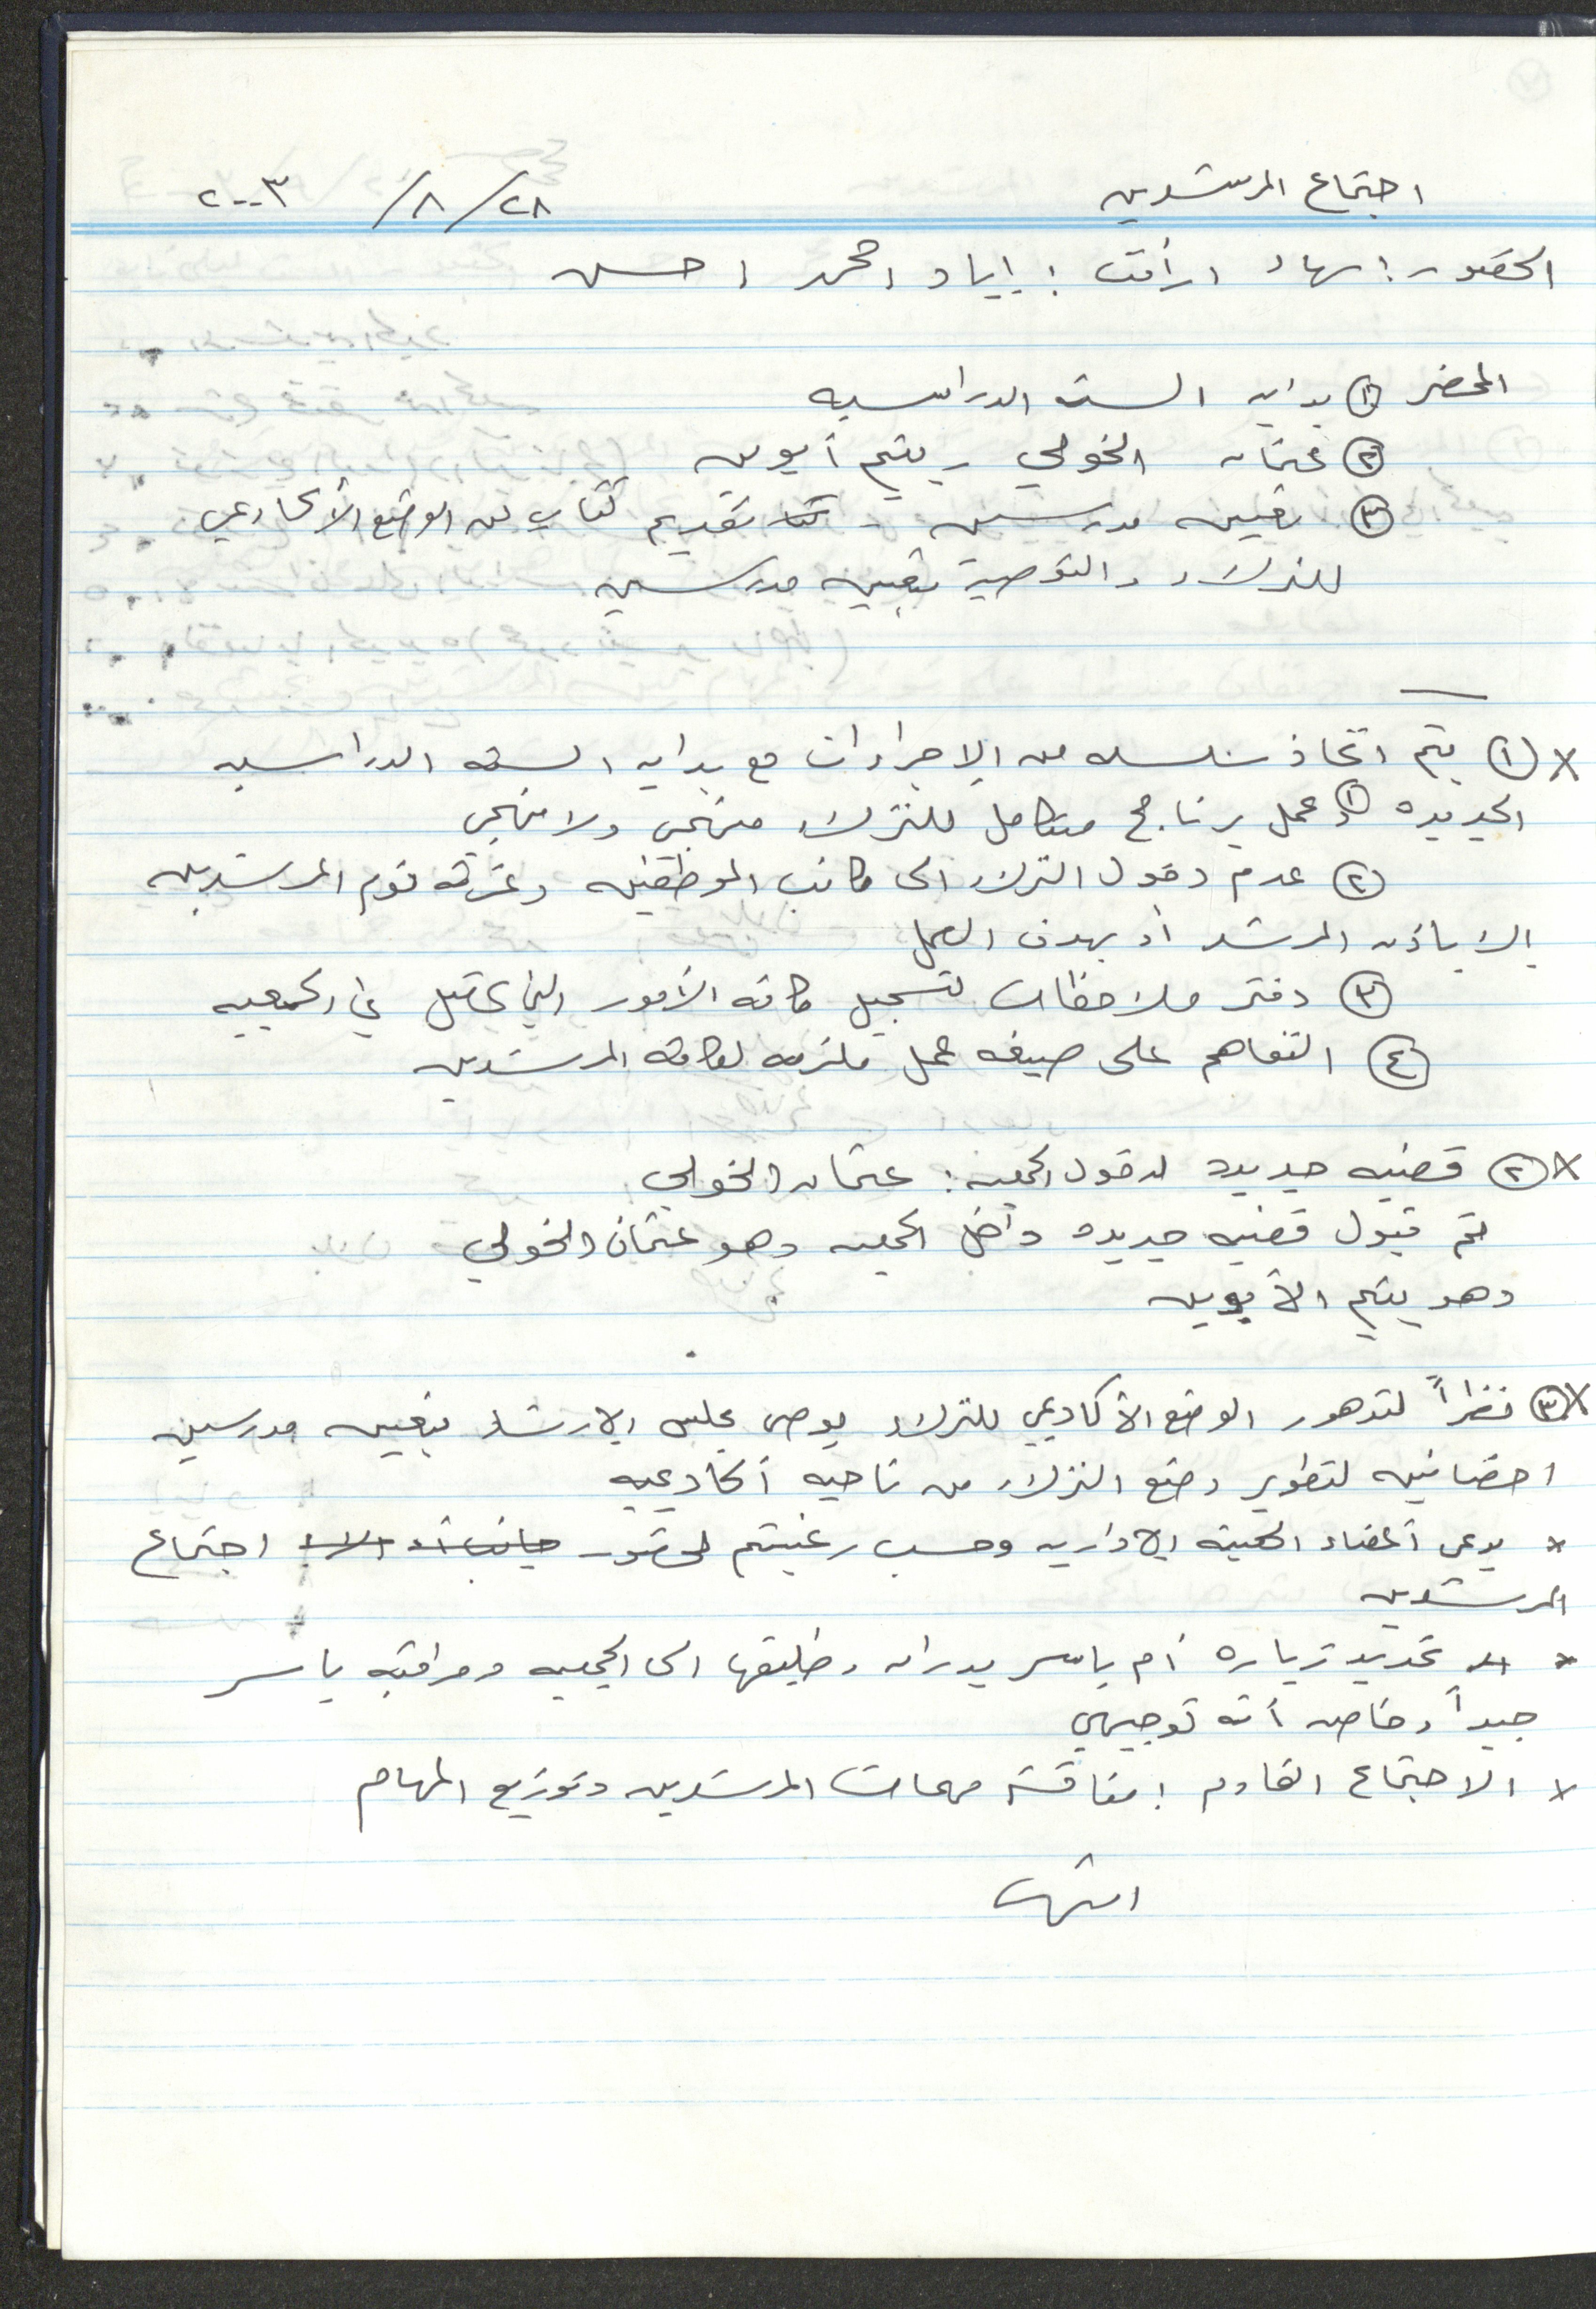 اجتماع المرشدين ٢٨/ ٨/ ٢٠٠٣
الحضور: سهاد، رأفت، إياد، محمد، حسن
المحضر ① بدايه السنه الدراسيه
② عثمان الخولي - يتيم أبوين
③ تعيين مدرسين - تقديم كتاب عن الوضع الأكاديمي
للنزلاء والتوصية بتعيين مدرسين
× ① يتم اتخاذ سلسله من الإجراءات مع بدايه السنه الدراسيه
الجديده ① عمل برنامج متكامل للنزلاء منهجي ولا منهجي
② عدم دخول النزلاء الى مكاتب الموظفين وغرفه نوم المرشدين
إلا بإذن المرشد أو بهدف العمل
③ دفتر ملاحظات لتسجيل كافه الأمور التي تحصل في الجمعيه
④ التفاهم على صيغه عمل ملزمه لكافه المرشدين
× ② قضيه جديده لدخول الجمعيه: عثمان الخولي
تم قبول قضيه جديده داخل الجمعيه وهو عثمان الخولي
وهو يتيم الأبوين
× ③ نظراً لتدهور الوضع الأكاديمي للنزلاء يوصي مجلس الإرشاد بتعيين مدرسين
اضافيين لتطوير وضع النزلاء من ناحيه أكاديميه
* يدعى أعضاء الهيئه الإداريه وحسب رغبتهم لحضور اجتماع
المرشدين
* تحديد زياره أم ياسر بدران وخليقها الى الجمعيه ومراقبه ياسر
جيداً وخاصه أنه توجيهي
× الاجتماع القادم: مناقشه مهمات المرشدين وتوزيع المهام
انتهى